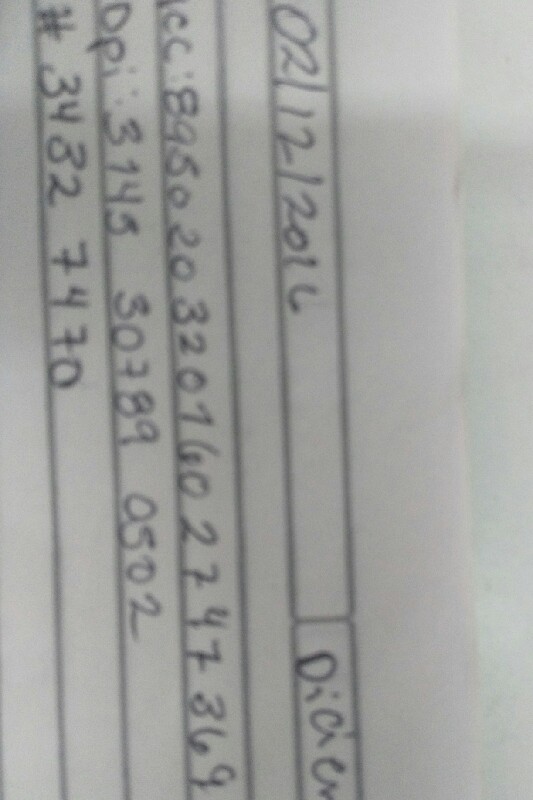 02/12/2016 Diciem
icc: 8950203201602747369
Dpi: 3145 30789 0502
# 3432 7470